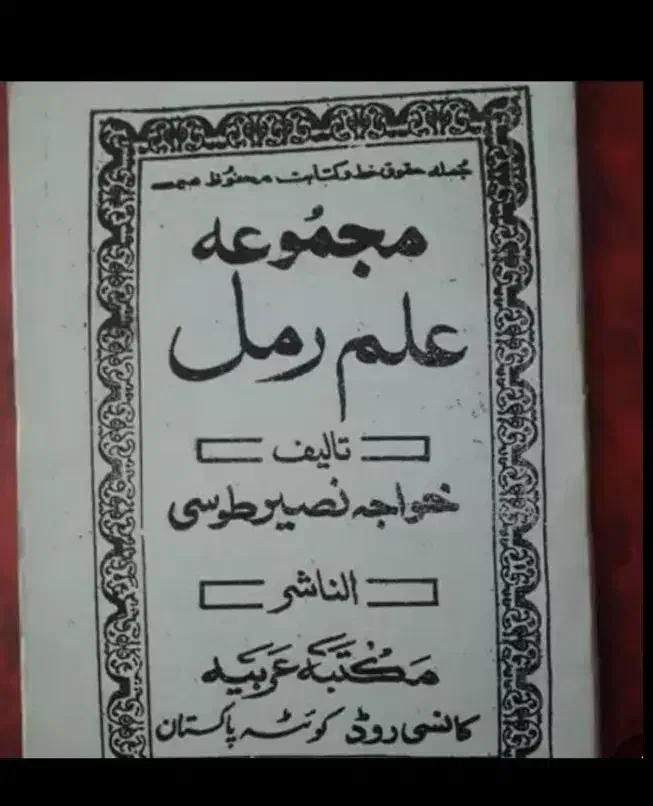 جمله حقوق خط وکتابت محفوظ هیں
مجمُوعه
علم رمل
تالیف
خواجه نصیر طوسی
الناشر
مَکْتَبَة عَرَبِیَه
کانسی روڈ کوئٹه پاکستان